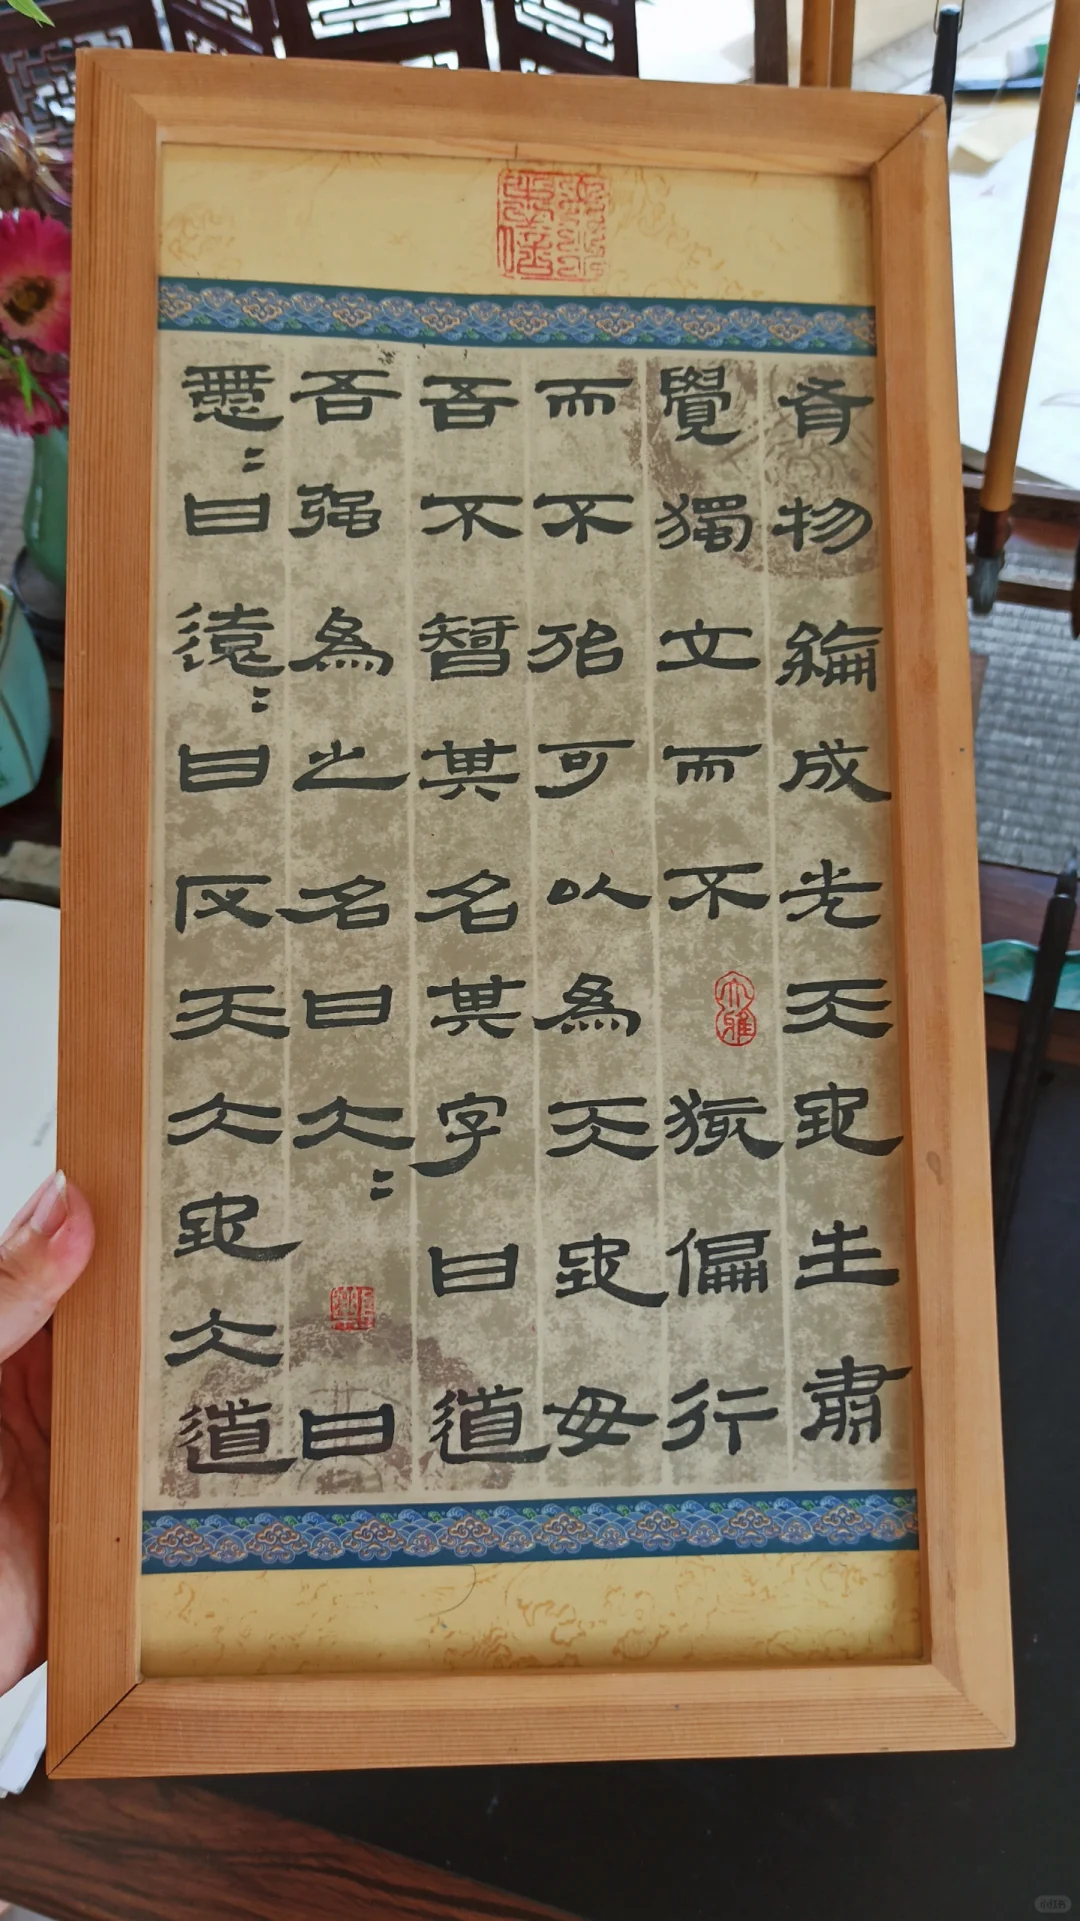 有物綸成先天地生肅
覺獨立而不孩偏行
而不殆可以為天地母
吾不智其名其字曰道
吾强為之名曰大=曰
曰遠=曰反天大地大道
大雅
小红书